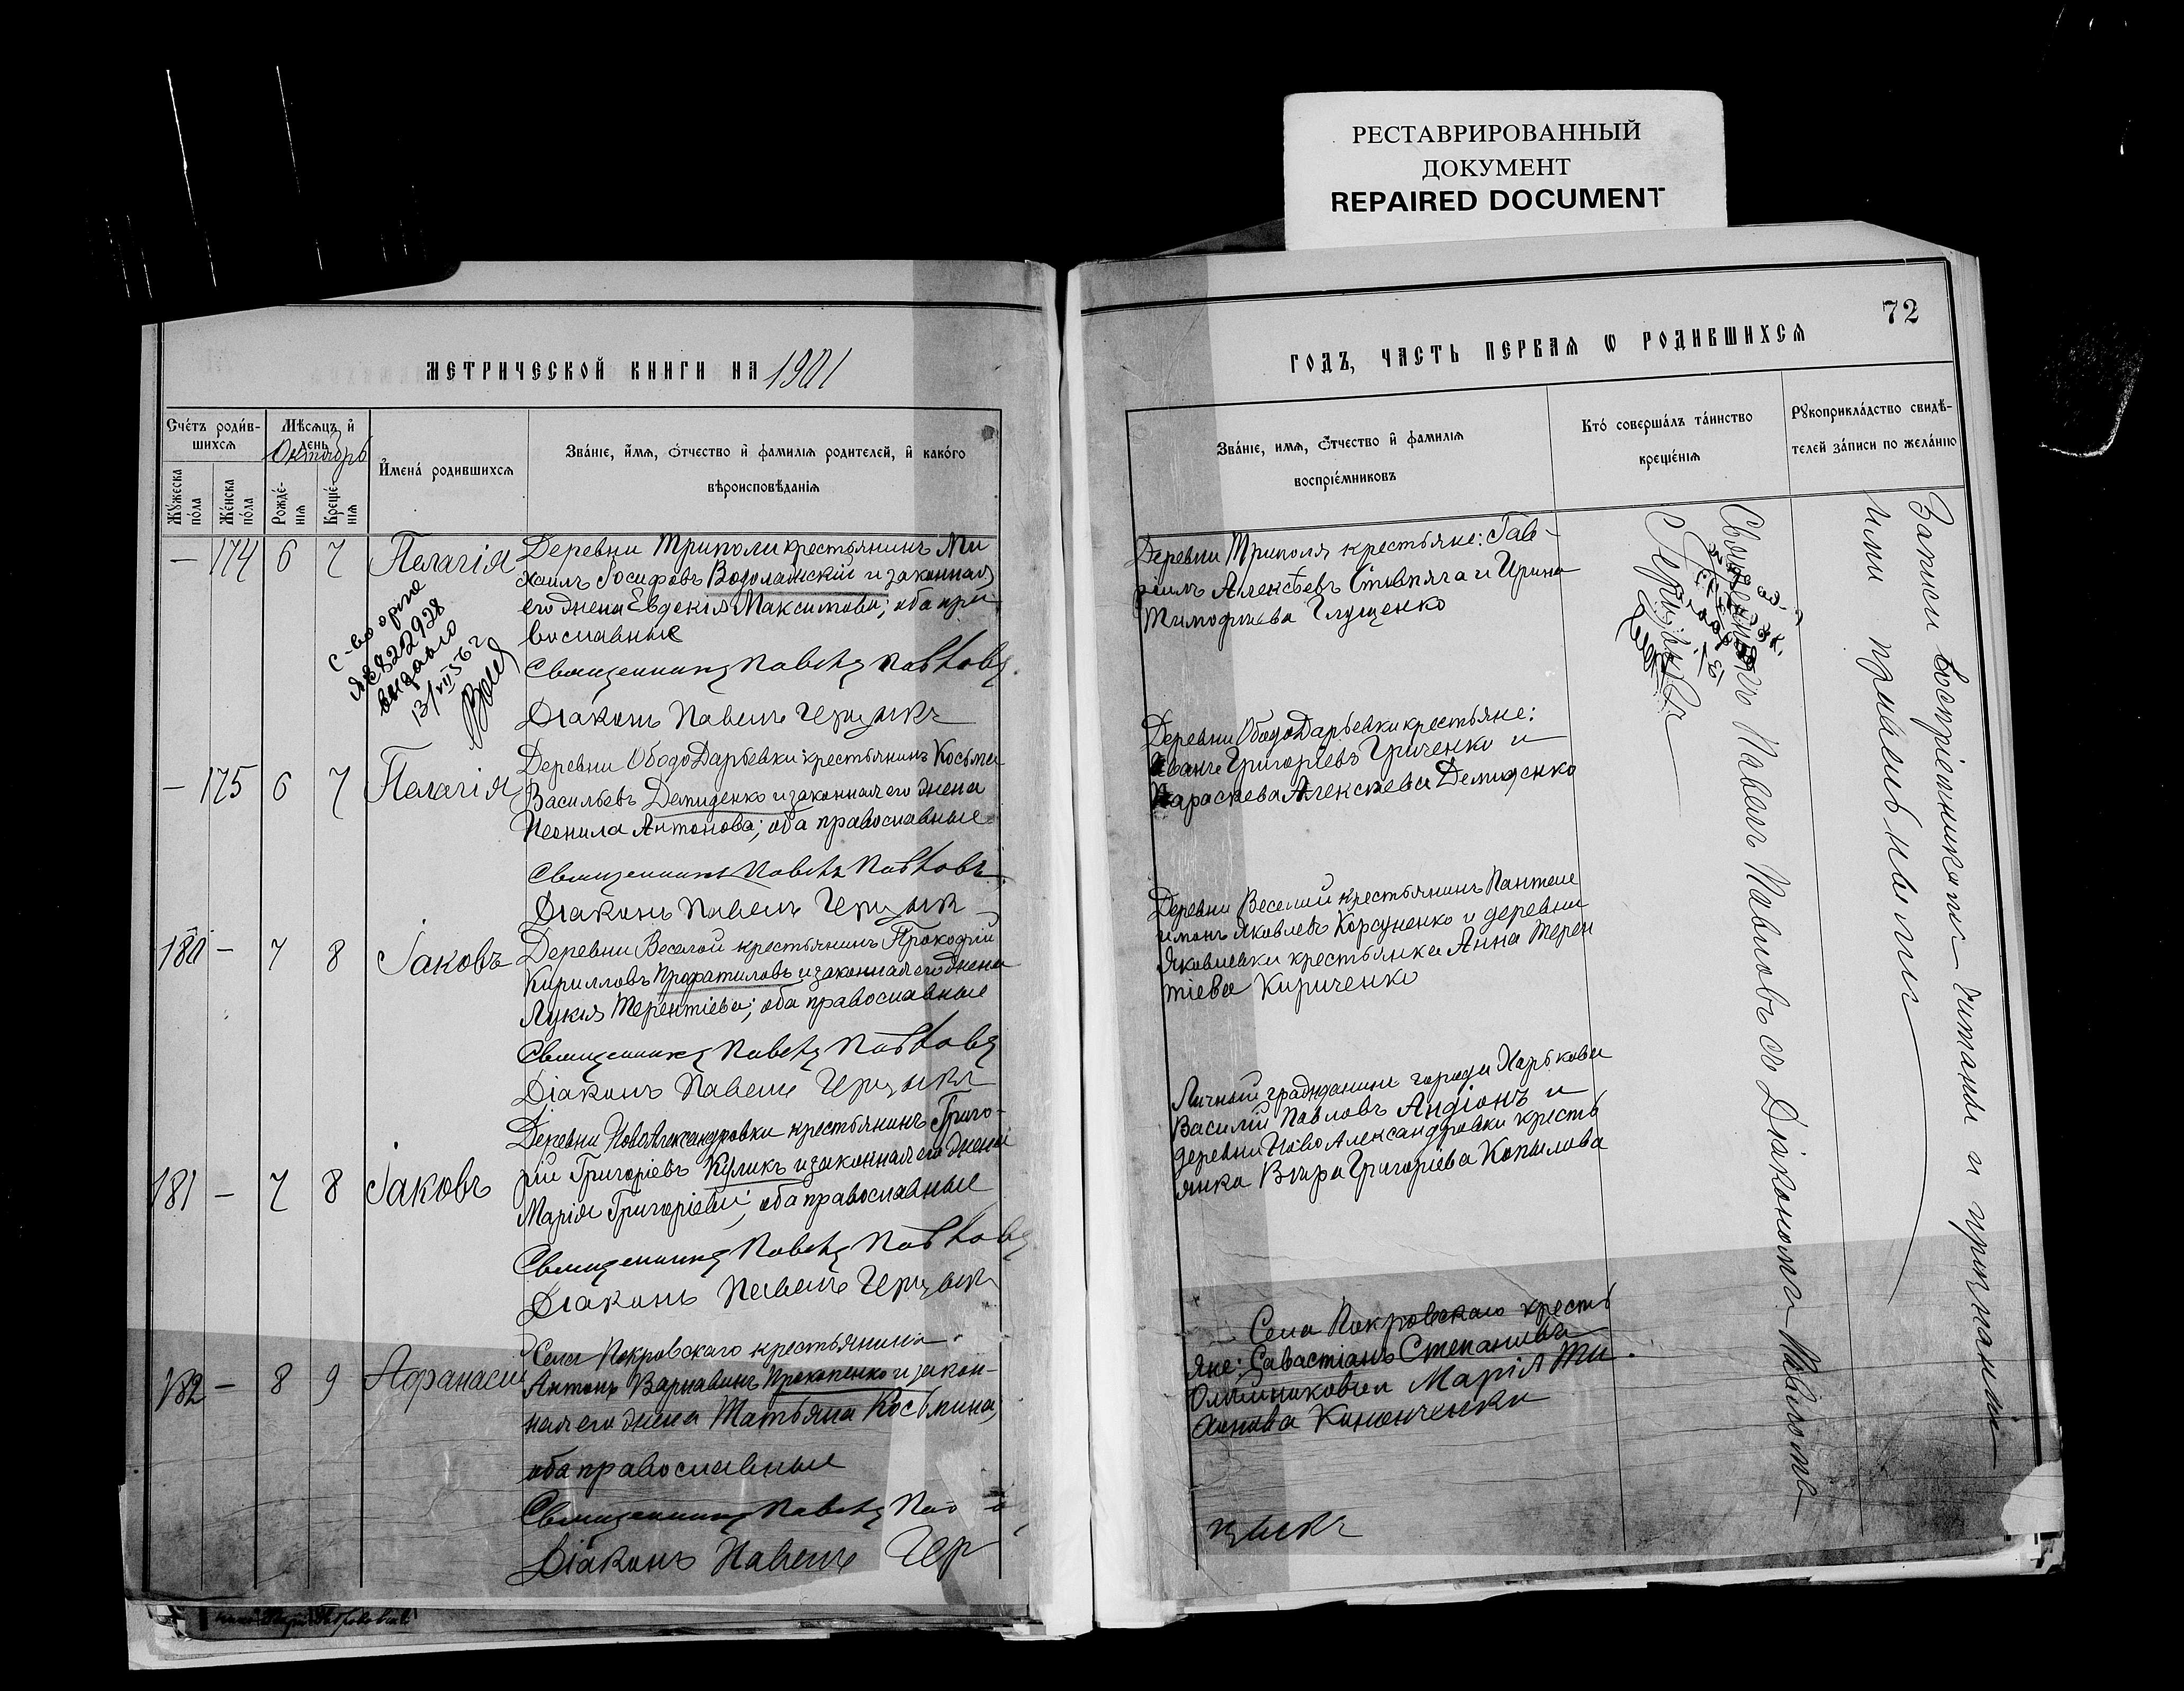 РЕСТАВРИРОВАННЫЙ
ДОКУМЕНТ
REPAIRED DOCUMENT
МЕТРИЧЕСКОЙ КНИГИ НА 1901
Счéтъ роди́в-
шихся
Му́жеска
по́ла
Же́нска
по́ла
Мѣ́сяцъ и҆
день
Октябрь
Рожде́-
нїя
Креще́-
нїя
И҆мена̀ родившихся
Зва́нїе, и҆́мя, ѻ҆́тчество и҆ фамилїя родителей, и҆ како́го
вѣроисповѣ́данїя
— 174 6 7 Пелагія
Деревни Триполи крестьянинъ Ми
хаилъ Іосифовъ Водолажскій и законная
его жена Евдокія Максимова; оба пра
вославные
Священникъ Павелъ Павловъ
Діаконъ Павелъ Черцыкъ
с-во
№ 822928
выдано
13/VII 56 г
— 175 6 7 Пелагія
Деревни ОбодоДарьевки крестьянинъ Косьма
Васильевъ Демиденко и законная его жена
Неонила Антонова; оба православные
Священникъ Павелъ Павловъ
Діаконъ Павелъ Черцыкъ
180 — 7 8 Іаковъ
Деревни Веселой крестьянинъ Прокофій
Кирилловъ и законная его жена
Лукія Терентіева; оба православные
Священникъ Павелъ Павловъ
Діаконъ Павелъ Черцыкъ
181 — 7 8 Іаковъ
Деревни НовоАлександровки крестьянинъ Григо-
рій Григоріевъ Куликъ и законная его жена
Марія Григоріева; оба православные
Священникъ Павелъ Павловъ
Діаконъ Павелъ Черцыкъ
182 — 8 9 Афанасій
Села Покровскаго крестьянинъ
Антонъ Варнавинъ Прокопенко и закон-
ная его жена Татьяна Косьмина,
оба православные
Священникъ Павелъ
Діаконъ Павелъ Чер
72
ГОДЪ, ЧАСТЬ ПЕРВАЯ Ѡ РОДИВШИХСЯ
Зва́нїе, имя, ѻ҆́тчество и҆ фамилїя
воспрїе́мниковъ
Кто́ соверша́лъ та́инство
креще́нїя
Рꙋкоприкла́дство свидѣ́-
телей за́писи по жела́нїю
Деревни Триполя крестьяне: Гав-
ріилъ Алексѣевъ Стовпяга и Ирина
Тимофеева Глущенко
Деревни ОбодоДарьевки крестьяне:
Иванъ Григорьевъ Гриченко и
Параскева Алексеева Демиденко
Деревни Веселой крестьянинъ Пантеле
имонъ Яковлевъ Корсуненко и деревни
Яковлевки крестьянка Анна Терен
тіева Кириченко
Личный гражданинъ города Харькова
Василій Павловъ Андіонъ и
деревни НовоАлександровки кресть
янка Вѣра Григорьева Копылова
Села Покровскаго кресть
яне: Савастіанъ Степановъ
Олейниковъ и Марія Ти
хонова Кононченко
цыкъ
Священникъ Павелъ Павловъ съ Діакономъ Павломъ
Черцыкомъ
Записи Воспріемниками читаны и признаны
ими правильными